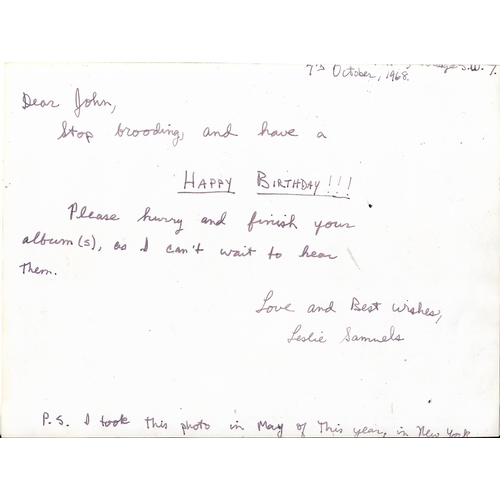 S.W.7.
7th October, 1968.
Dear John,
Stop brooding, and have a
HAPPY BIRTHDAY!!!
Please hurry and finish your
album(s), as I can't wait to hear
them.
Love and Best Wishes,
Leslie Samuels
P.S. I took this photo in May of this year, in New York